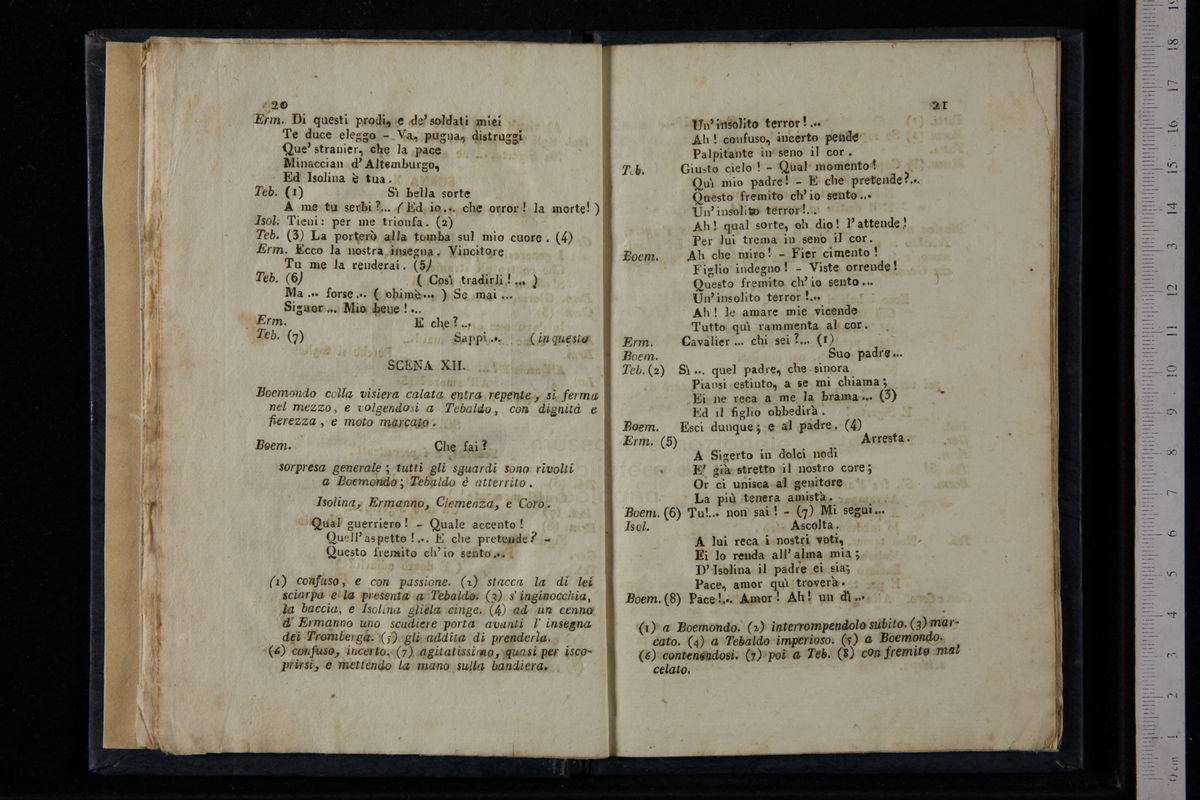 20
Erm. Di questi prodi, e de' soldati miei
Te duce eleggo - Va, pugna, distruggi
Que' stranier, che la pace
Minaccian d'Altemburgo,
Ed Isolina è tua.
Teb. (1) Sì bella sorte
A me tu serbi?... (Ed io... che orror! la morte!)
Isol. Tieni: per me trionfa. (2)
Teb. (3) La porterò alla tomba sul mio cuore. (4)
Erm. Ecco la nostra insegna. Vincitore
Tu me la renderai. (5)
Teb. (6) (Così tradirli!...)
Ma... forse... (ohimè...) Se mai...
Signor... Mio bene!...
Erm. E che?...
Teb. (7) Sappi... (in questo
SCENA XII.
Boemondo colla visiera calata entra repente, si ferma
nel mezzo, e volgendosi a Tebaldo, con dignità e
fierezza, e moto marcato.
Boem. Che fai?
sorpresa generale; tutti gli sguardi sono rivolti
a Boemondo; Tebaldo è atterrito.
Isolina, Ermanno, Clemenza, e Coro.
Qual guerriero! - Quale accento!
Quell'aspetto!... E che pretende? -
Questo fremito ch'io sento...
(1) confuso, e con passione. (2) stacca la di lei
sciarpa e la presenta a Tebaldo. (3) s'inginocchia,
la baccia, e Isolina gliela cinge. (4) ad un cenno
d'Ermanno uno scudiere porta avanti l'insegna
dei Tromberga. (5) gli addita di prenderla.
(6) confuso, incerto. (7) agitatissimo, quasi per isco-
prirsi, e mettendo la mano sulla bandiera.
21
Un'insolito terror!...
Ah! confuso, incerto pende
Palpitante in seno il cor.
Teb. Giusto cielo! - Qual momento!
Quì mio padre! - E che pretende?...
Questo fremito ch'io sento...
Un'insolito terror!...
Ah! qual sorte, oh dio! l'attende!
Per lui trema in seno il cor.
Boem. Ah che miro! - Fier cimento!
Figlio indegno! - Viste orrende!
Questo fremito ch'io sento...
Un'insolito terror!...
Ah! le amare mie vicende
Tutto quì rammenta al cor.
Erm. Cavalier... chi sei?... (1)
Boem. Suo padre...
Teb. (2) Sì... quel padre, che sinora
Piansi estinto, a se mi chiama;
Ei ne reca a me la brama... (3)
Ed il figlio obbedirà.
Boem. Esci dunque; e al padre. (4)
Erm. (5) Arresta.
A Sigerto in dolci nodi
E' già stretto il nostro core;
Or ci unisca al genitore
La più tenera amistà.
Boem. (6) Tu!... non sai! - (7) Mi segui...
Isol. Ascolta.
A lui reca i nostri voti,
Ei lo renda all'alma mia;
D'Isolina il padre ei sia;
Pace, amor quì troverà.
Boem. (8) Pace!... Amor! Ah! un dì...
(1) a Boemondo. (2) interrompendolo subito. (3) mar-
cato. (4) a Tebaldo imperioso. (5) a Boemondo.
(6) contenendosi. (7) poi a Teb. (8) con fremito mal
celato.